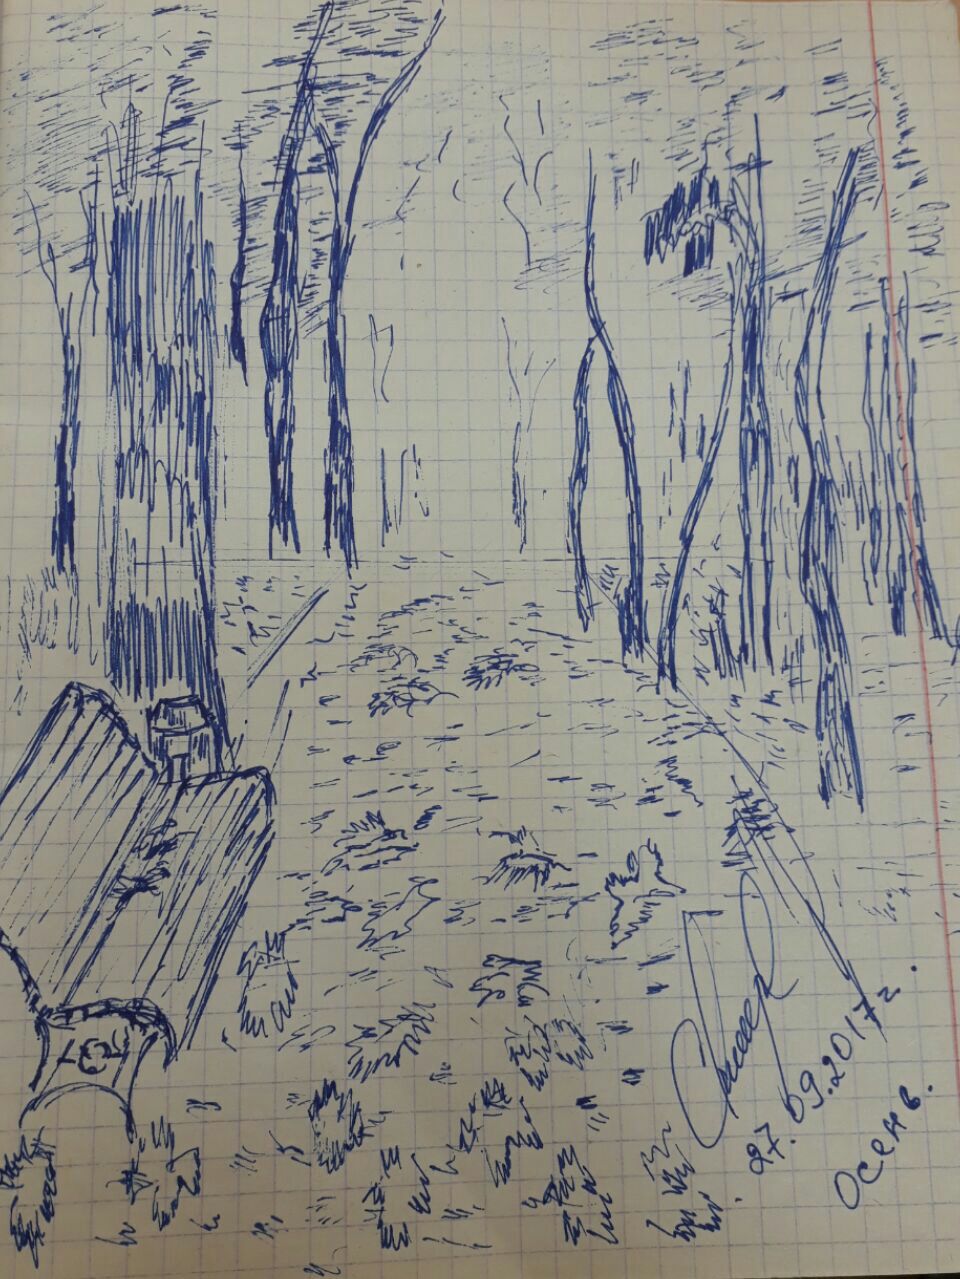 27.09.2017г.
Осень.